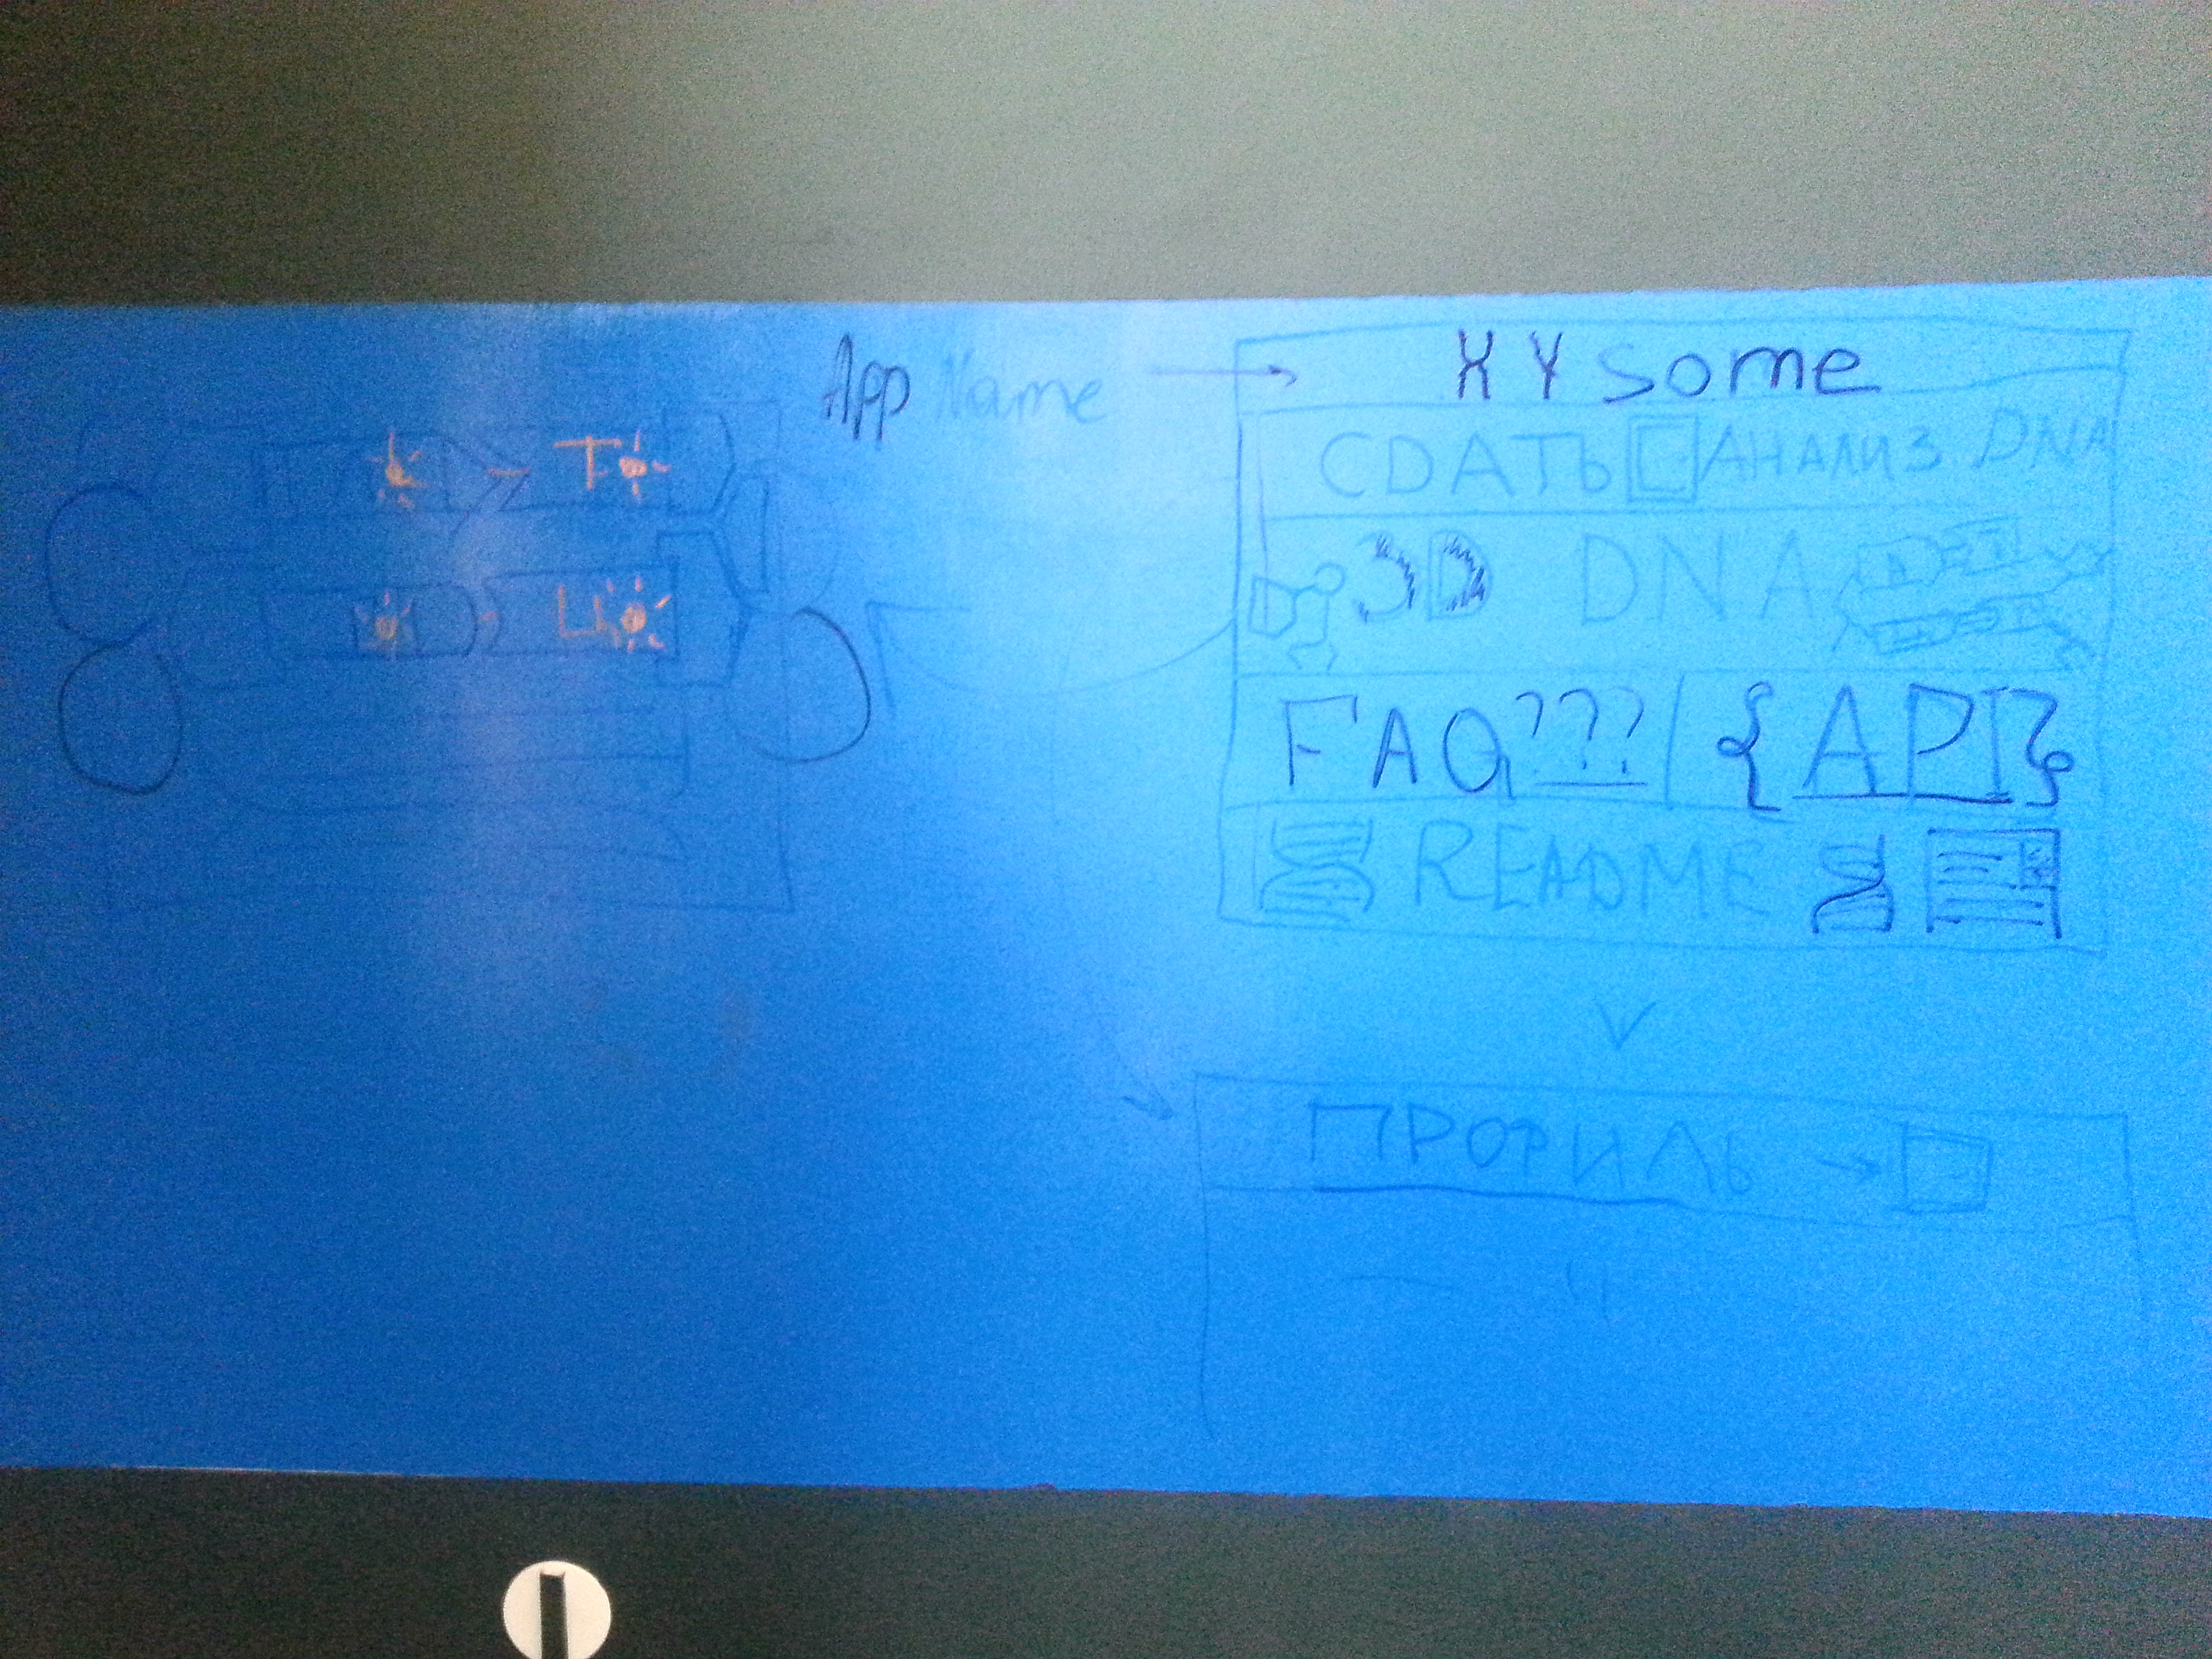 App Name
XYsome
СДАТЬ АНАЛИЗ DNA
3D DNA
FAQ???
{API}
README
ПРОФИЛЬ